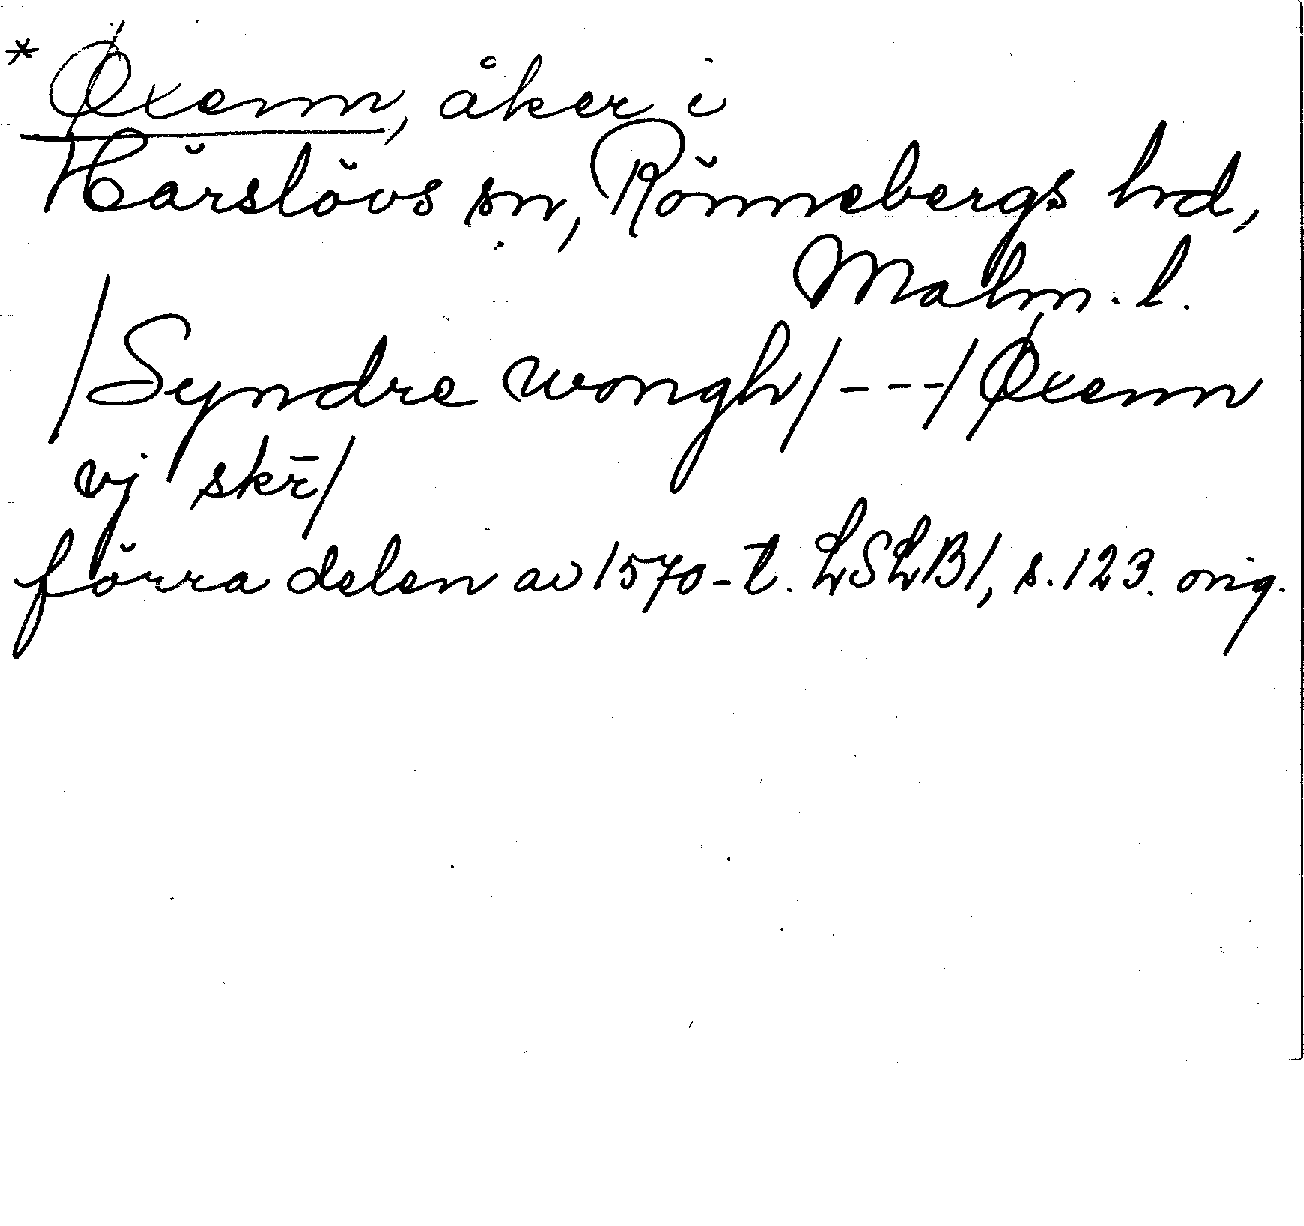 * Øxenn, åker i
Härslövs sn, Rönnebergs hd,
Malm. l.
/Syndre wongh/ - - - / Øxenn
vj skr̄/
förra delen av 1570-t. LSLB1, s. 123. orig.